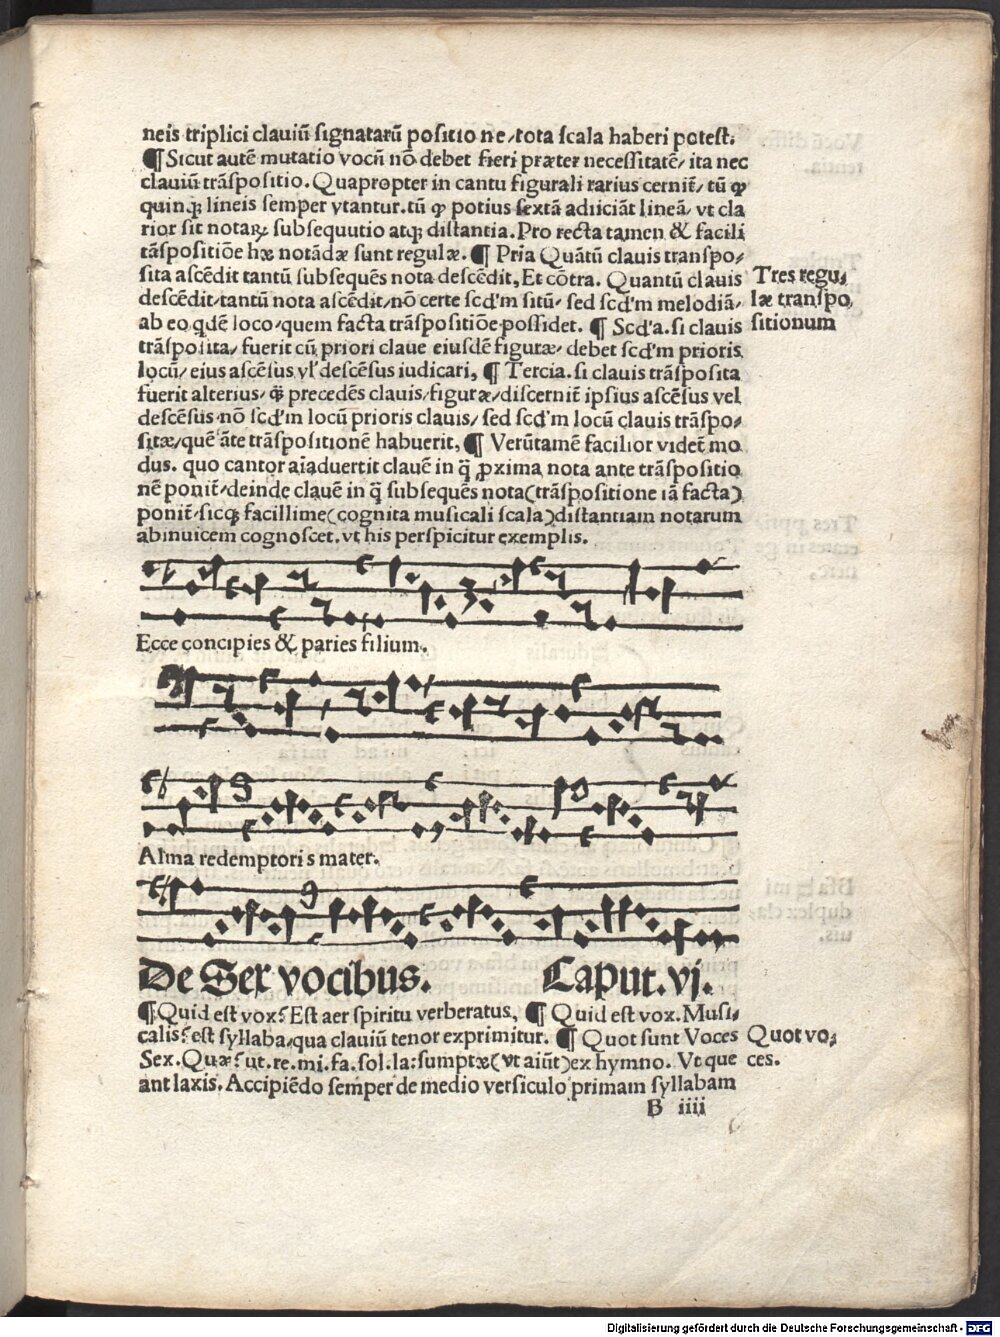 neis triplici clauiū signatarū positio ne/tota scala haberi potest.
¶ Sicut autē mutatio vocū nō debet fieri præter necessitatē/ ita nec
clauiū trāspositio. Quapropter in cantu figurali rarius cernit̄/ tū ꝙ
quinꝗ; lineis semper vtantur. tū ꝙ potius sextā adiiciāt lineā/ vt cla
rior sit notaꝝ subsequutio atꝗ; distantia. Pro recta tamen & facili
trāspositiōe hæ notādæ sunt regulæ. ¶ Pria Quātū clauis transpo⸗
sita ascēdit tantū subsequēs nota descēdit, Et cōtra. Quantū clauis
descēdit/tantū nota ascēdit/ nō certe scd'm sitū/ sed scd'm melodiā/
ab eo qdē loco/quem facta trāspositiōe possidet. ¶ Scd'a. si clauis
trāsposita/ fuerit cū priori claue eiusdē figuræ/ debet scd'm prioris
locū/ eius ascēsus vl' descēsus iudicari, ¶ Tercia. si clauis trāsposita
fuerit alterius/ q̄̈ precedēs clauis/ figuræ/ discernit̄ ipsius ascēsus vel
descēsus nō scd'm locū prioris clauis/ sed scd'm locū clauis trāspo⸗
sitæ/quē āte trāspositionē habuerit, ¶ Verūtamē facilior videt̄ mo
dus. quo cantor aīaduertit clauē in q̄ ꝓxima nota ante trāspositio
nē ponit̄/ deinde clauē in q̄ subsequēs nota(trāspositione iā facta)
ponit̄/sicꝗ; facillime(cognita musicali scala)distantiam notarum
abinuicem cognoscet. vt his perspicitur exemplis.
Tres regu⸗
læ transpo
sitionum
Ecce concipies & paries filium.
Alma redemptori s mater.
De Sex vocibus. Caput. vj.
¶ Quid est vox? Est aer spiritu verberatus, ¶ Quid est vox. Musi⸗
calis? est syllaba/qua clauiū tenor exprimitur. ¶ Quot sunt Voces
Sex. Quæ? ut. re. mi. fa. sol. la: sumptæ(vt aiūt)ex hymno. Vt que
ant laxis. Accipiēdo semper de medio versiculo primam syllabam
Quot vo⸗
ces.
B iiii
Digitalisierung gefördert durch die Deutsche Forschungsgemeinschaft - DFG